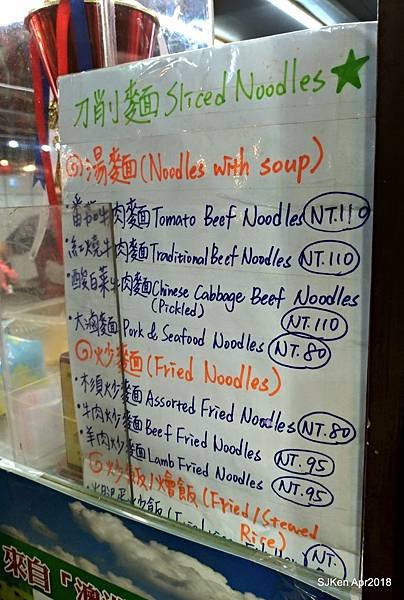 刀削麵 Sliced Noodles
湯麵(Noodles with soup)
番茄牛肉麵 Tomato Beef Noodles NT.110
紅燒牛肉麵 Traditional Beef Noodles NT.110
酸白菜牛肉麵 Chinese Cabbage Beef Noodles
(Pickled) NT.110
大滷麵 Pork & Seafood Noodles NT.80
炒麵(Fried Noodles)
木須炒麵 Assorted Fried Noodles NT.80
牛肉炒麵 Beef Fried Noodles NT.95
羊肉炒麵 Lamb Fried Noodles NT.95
炒飯/燴飯(Fried/Stewed
Rice)
蛋炒飯 NT.
來自「澳洲
SJKen Apr2018